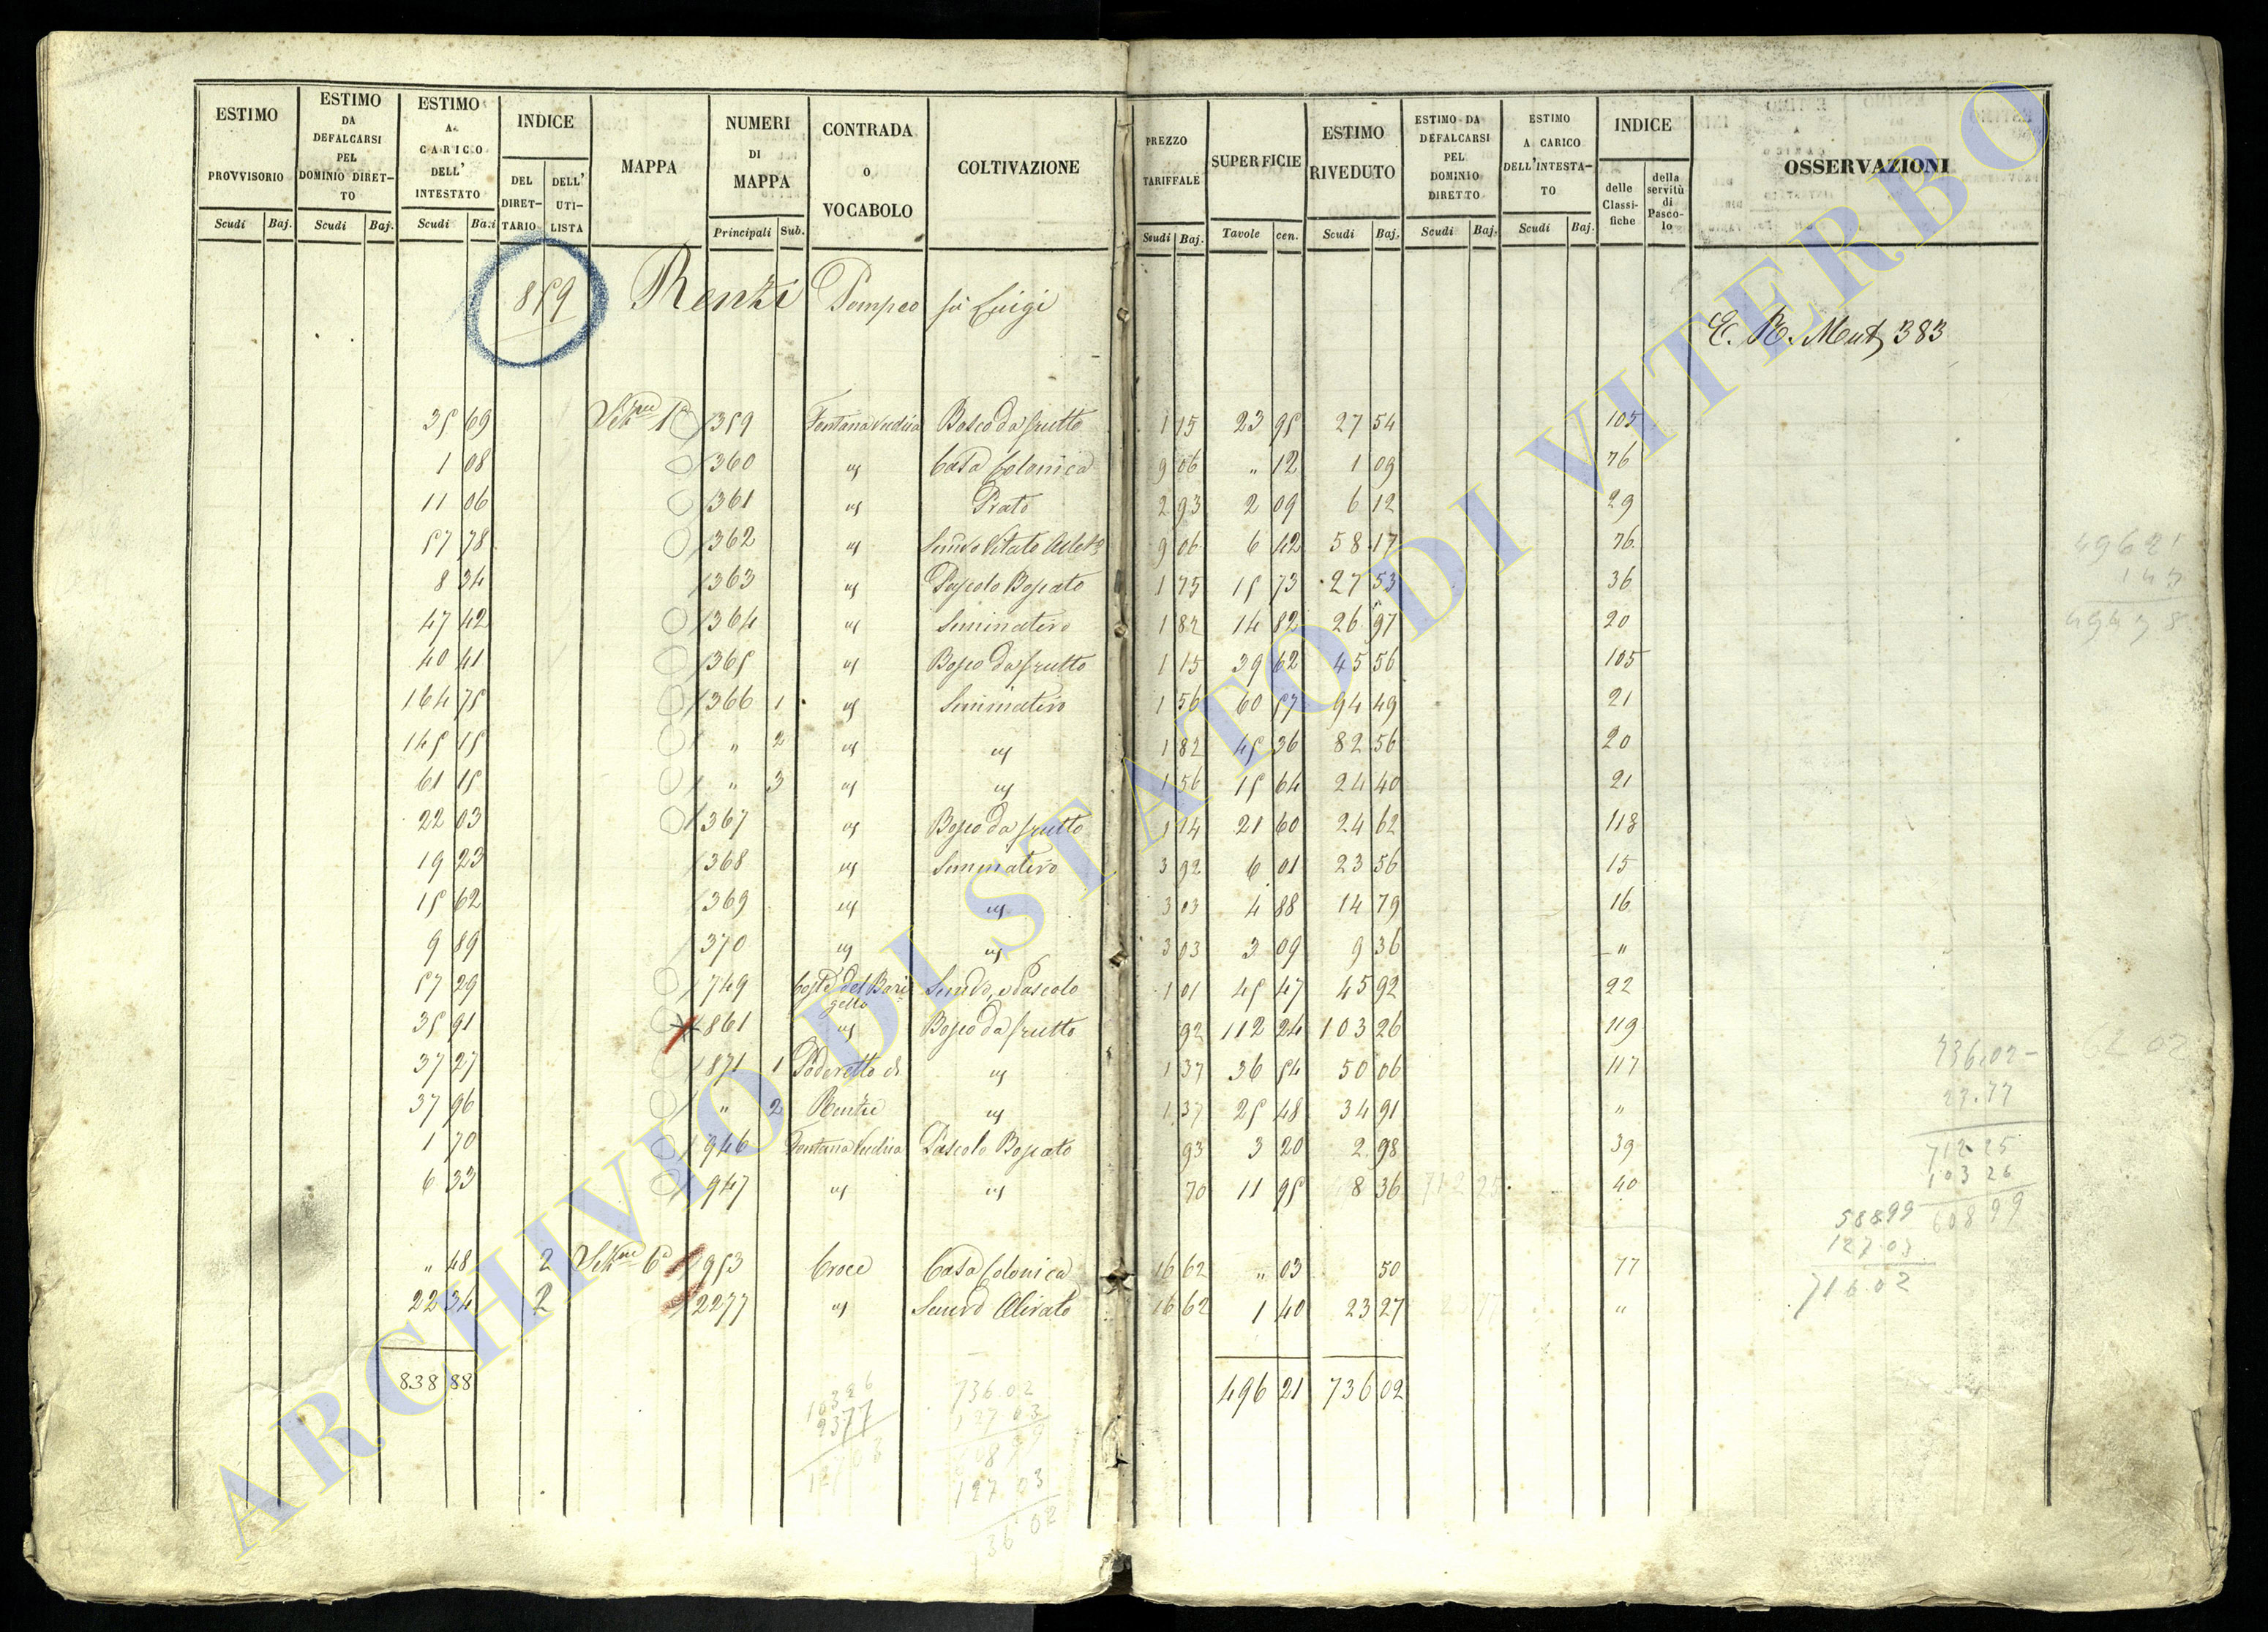 ESTIMO PROVVISORIO Scudi Baj.
ESTIMO DA DEFALCARSI PEL DOMINIO DIRETTO Scudi Baj.
ESTIMO A CARICO DELL' INTESTATO Scudi Baj
INDICE DEL DIRETTARIO DELL' UTILISTA
MAPPA
NUMERI DI MAPPA Principali Sub.
CONTRADA O VOCABOLO
COLTIVAZIONE
PREZZO TARIFFALE Scudi Baj.
SUPERFICIE Tavole cen.
ESTIMO RIVEDUTO Scudi Baj.
ESTIMO DA DEFALCARSI PEL DOMINIO DIRETTO Scudi Baj.
ESTIMO A CARICO DELL'INTESTATO Scudi Baj.
INDICE delle Classifiche della servitù di Pascolo
OSSERVAZIONI
859 Renzi Pompeo fù Luigi
E. R. Mut 383
35 69 359 Bosco da frutto 1 15 23 95 27 54 105
1 08 360 " Casa Colonica 9 06 " 12 1 09 76
11 06 361 " Prato 2 93 2 09 6 12 29
57 78 362 " 9 06 6 42 58 17 76
8 34 363 " Pascolo Boscato 1 75 15 73 27 53 36
47 42 364 " Seminativo 1 82 14 82 26 97 20
40 41 365 " Bosco da frutto 1 15 39 62 45 56 105
164 75 366 1 " Seminativo 1 56 60 57 94 49 21
145 15 " 2 " " 1 82 45 36 82 56 20
61 15 " 3 " " 1 56 15 64 24 40 21
22 03 367 " Bosco da frutto 1 14 21 60 24 62 118
19 23 368 " Seminativo 3 92 6 01 23 56 15
15 62 369 " " 3 03 4 88 14 79 16
9 89 370 " " 3 03 3 09 9 36 "
57 29 749 Costa del Barigello Semvo, e Pascolo 1 01 45 47 45 92 22
35 91 861 " Bosco da frutto 92 112 24 103 26 119
37 27 871 1 Poderetto di " 1 37 36 54 50 06 117
37 96 " 2 Renzi " 1 37 25 48 34 91 "
1 70 946 Pascolo Boscato 93 3 20 2 98 39
6 33 947 " " 70 11 95 8 36 40
" 48 2 953 Croce Casa Colonica 16 62 " 03 50 77
22 34 2 2277 " Semvo Olivato 16 62 1 40 23 27 "
838 88 496 21 736 02
49621
736.02
23.77
712 25
103 26
608 99
588.99
127.03
716.02
62 02
103 26
2377
736.02
127 03
127 03
ARCHIVIO DI STATO DI VITERBO